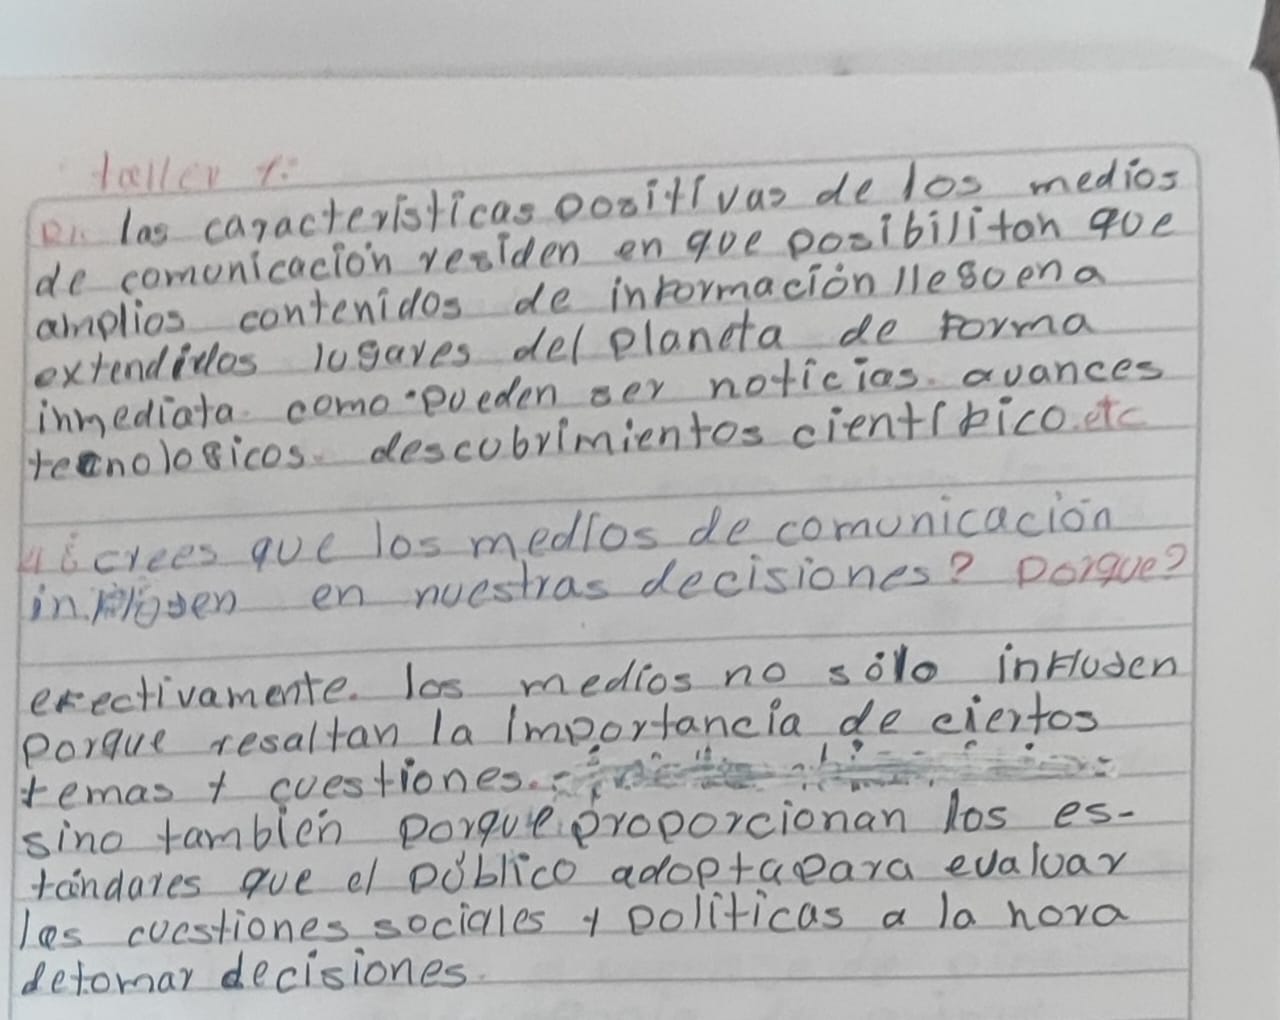 taller 1:
R1. las características positivas de los medios
de comunicación residen en que posibilitan que
amplios contenidos de información llegen a
extendidos lugares del planeta de forma
inmediata. como pueden ser noticias. avances
tecnologicos. descubrimientos científico.etc
4 ¿crees que los medios de comunicación
influyen en nuestras decisiones? Porque?
efectivamente. los medios no sólo influyen
porque resaltan la importancia de ciertos
temas y cuestiones.
sino también porque proporcionan los es-
tándares que el público adopta para evaluar
las cuestiones sociales y políticas a la hora
de tomar decisiones.